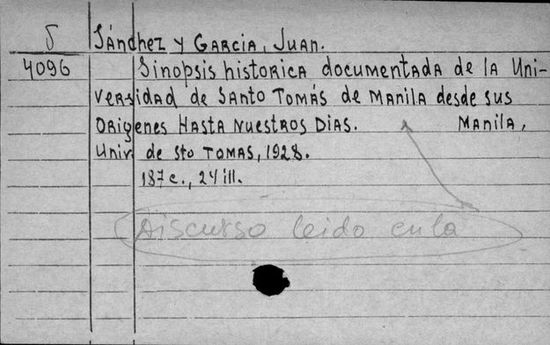 5 Sánchez y Garcia, Juan.
4096 Sinopsis historica documentada de la Uni-
versidad de Santo Tomás de Manila desde sus
origenes hasta nuestros dias. Manila,
Univ de Sto Tomas, 1928.
187 c., 24 ill.
Discurso leido en la